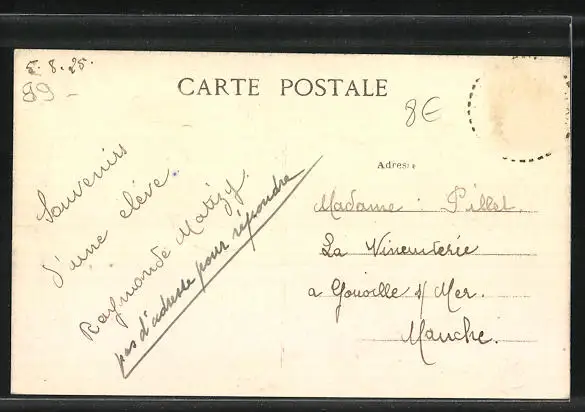 5.8.25.
89
CARTE POSTALE
8€
Adresse
Souvenirs
d'une elève.
Raymonde Matizy.
pas d'adresse pour répondre
Madame : Pillet.
La
a Gouville s/ Mer.
Manche.